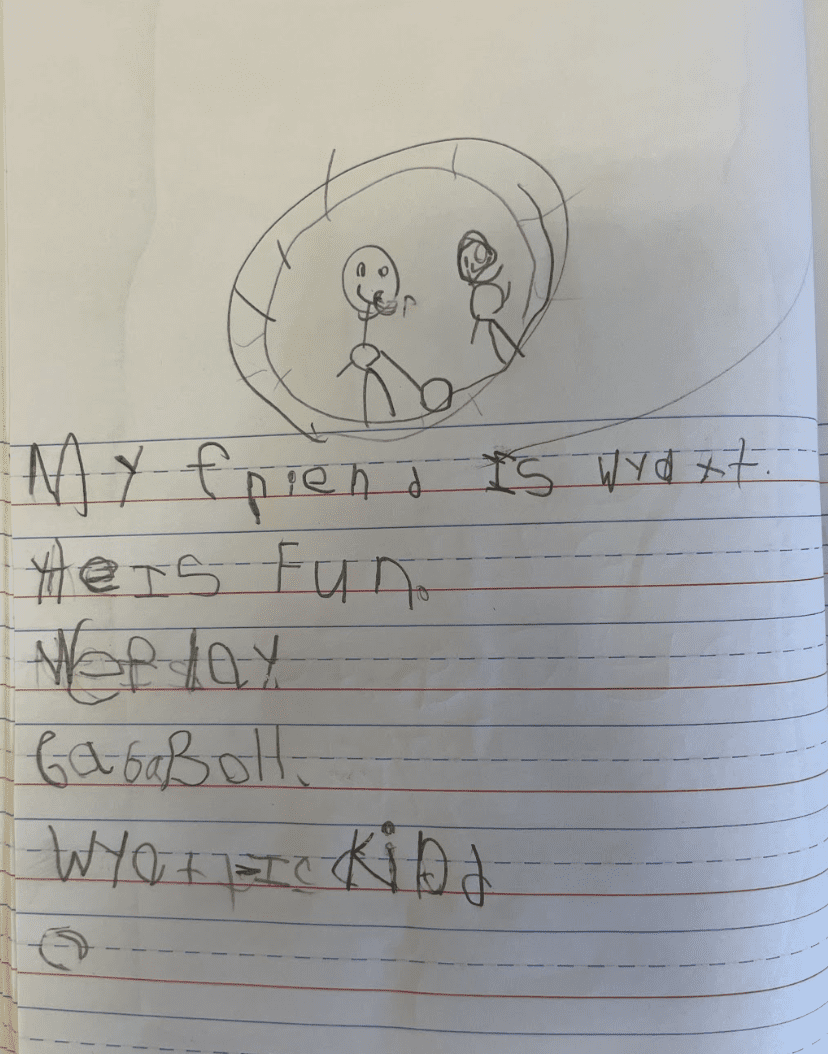 My friend Is wyaxt.
He Is Fun.
We Play
GagaBoll.
Wyatt Is KiDd